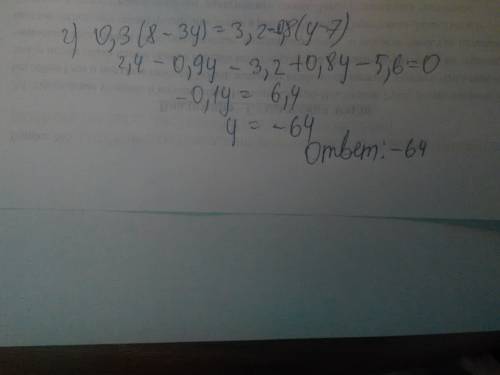 г) 0,3(8-3y) = 3,2-0,8(y-7)
2,4 - 0,9y - 3,2 + 0,8y - 5,6 = 0
-0,1y = 6,4
y = -64
Ответ: -64